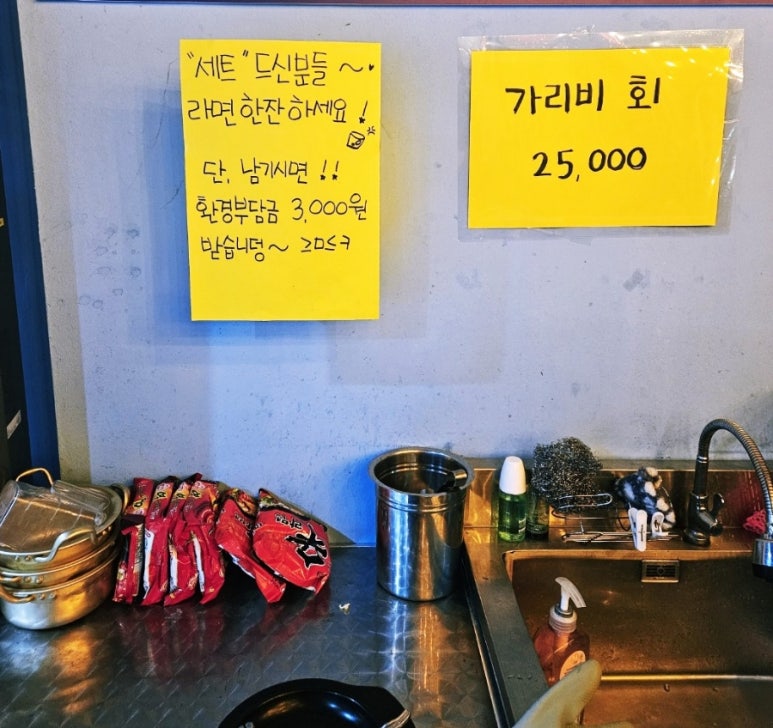 "세트" 드신분들 ~
라면 한잔 하세요!
단, 남기시면 !!
환경부담금 3,000원
받습니덩~ ㄹㅁㅅㅋ
가리비 회
25,000